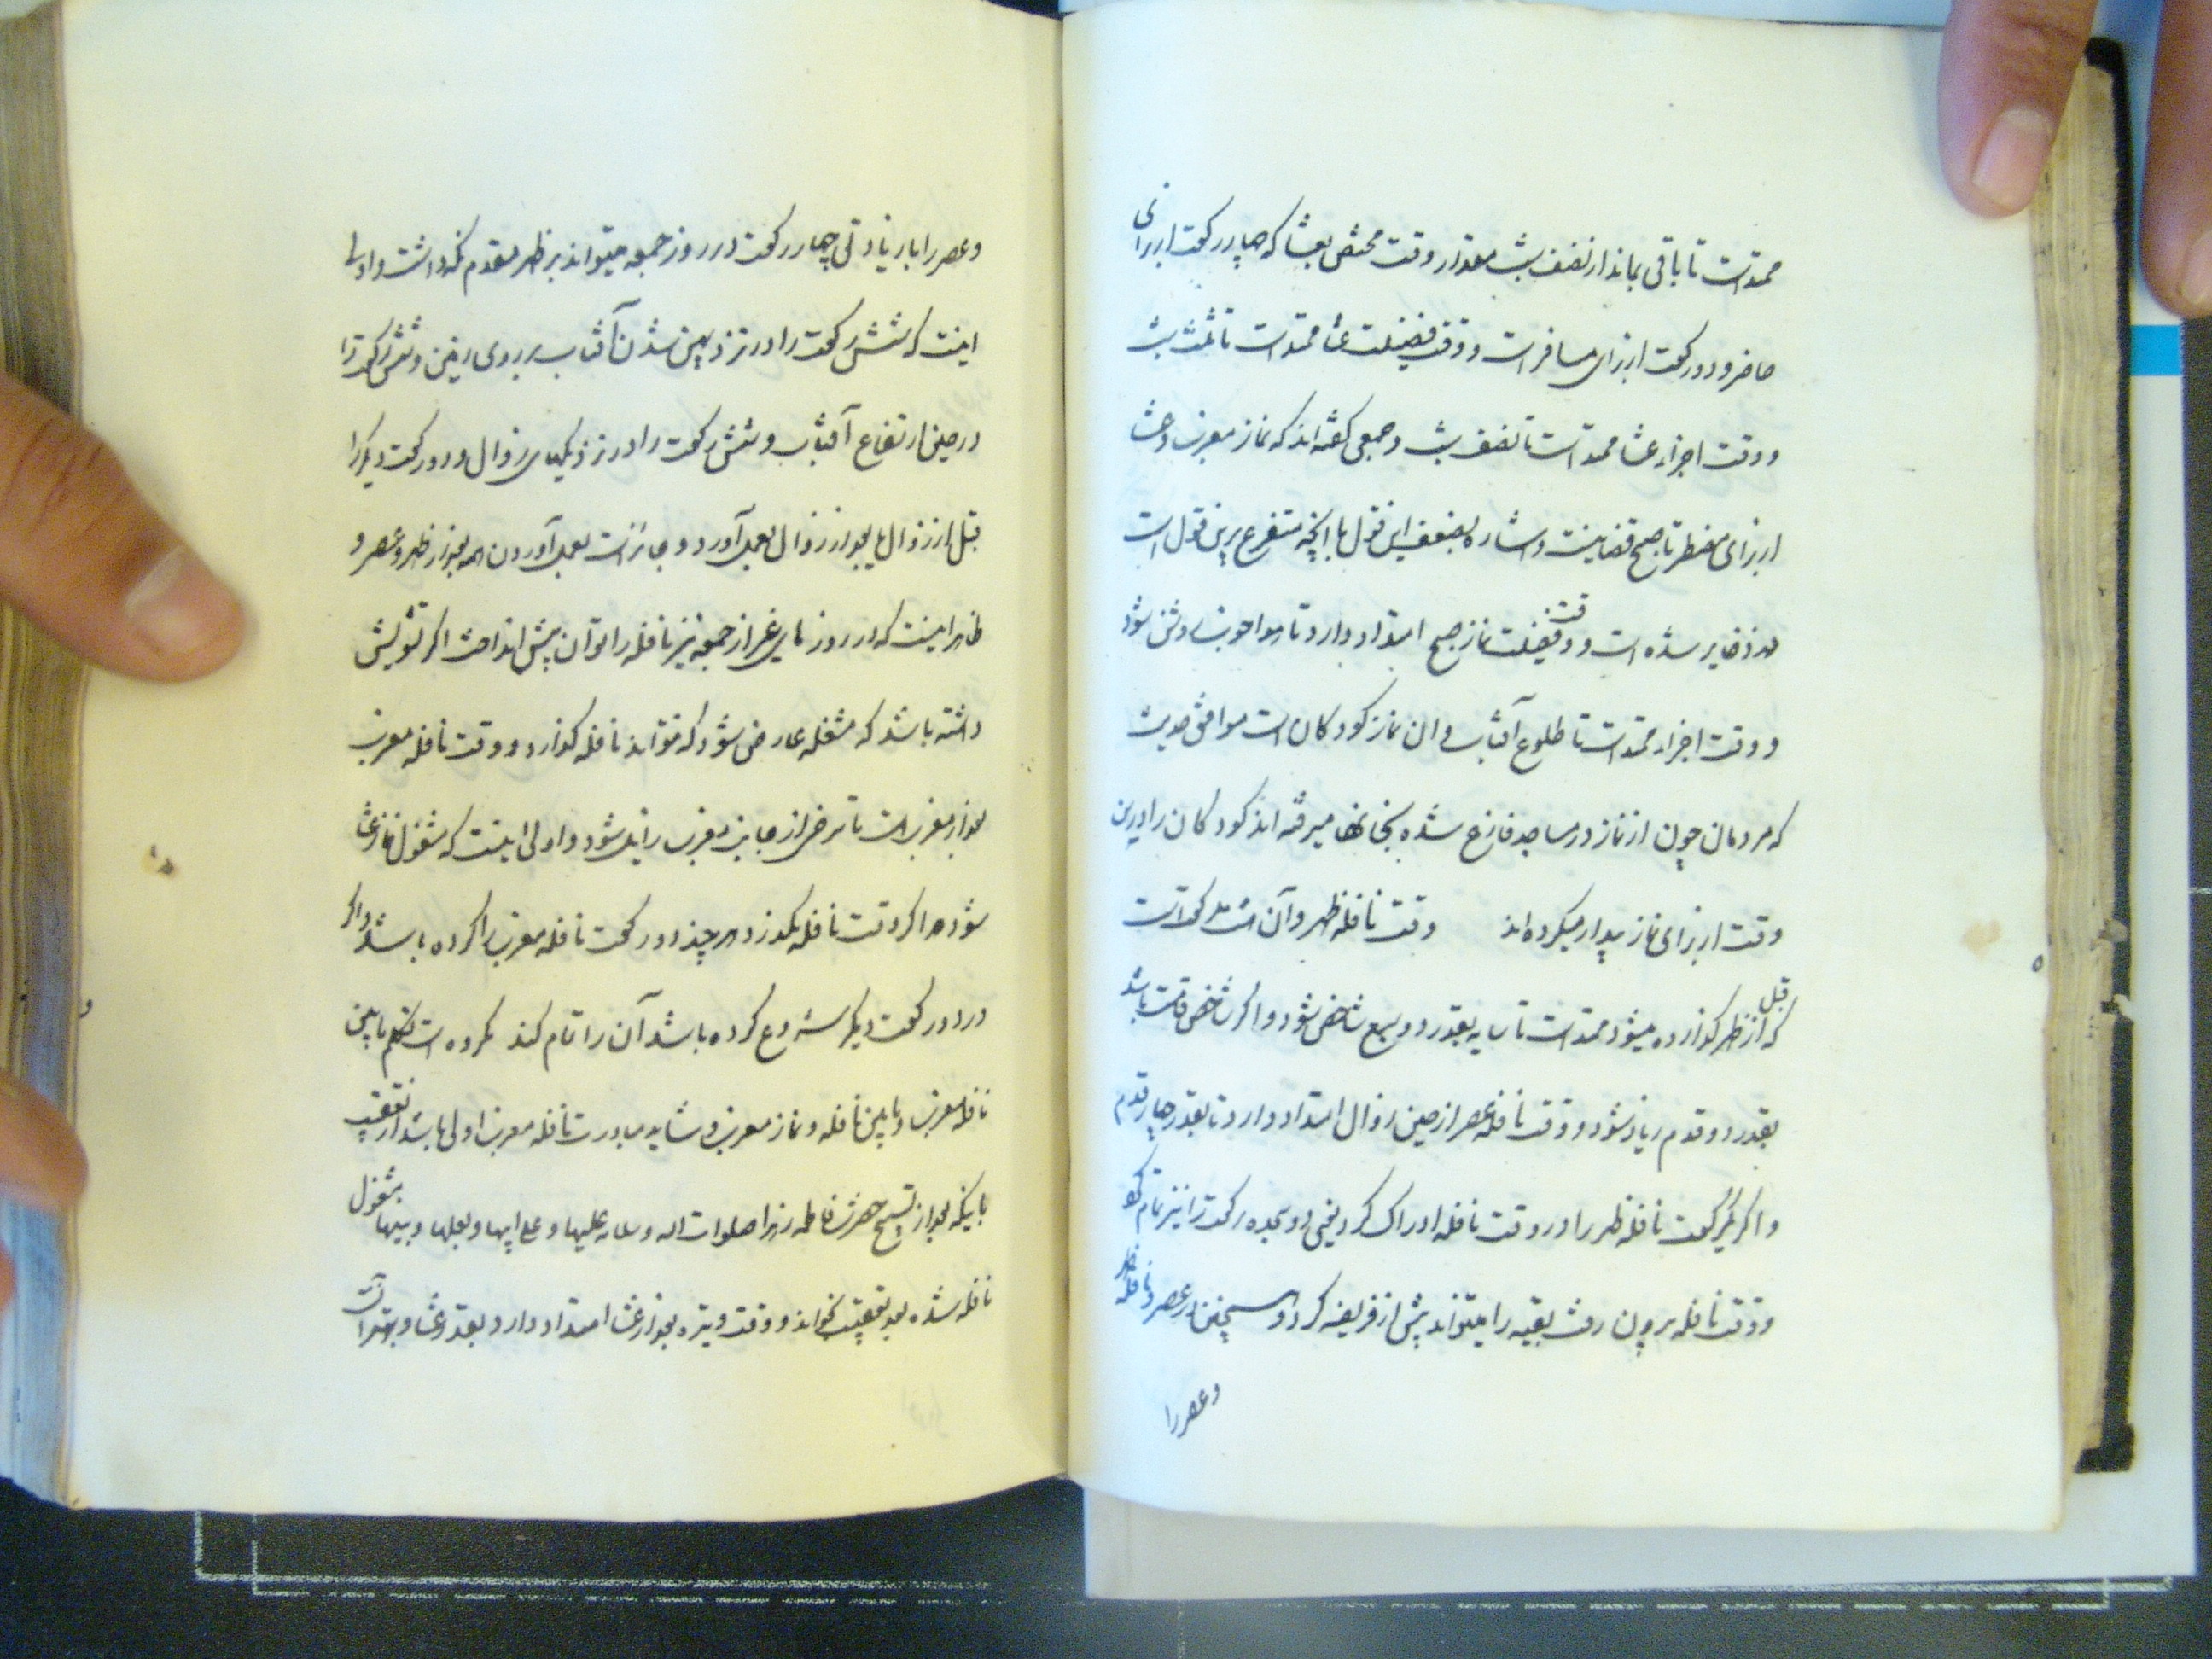 ممتد است تا باقی بماند از نصف شب مقدار وقت مختص بعشا که چهار رکعت از برای
حاضر و دو رکعت از برای مسافر است و وقت فضیلت عشا ممتد است تا ثلث شب
و وقت اجزاء عشا ممتد است تا نصف شب و جمعی گفته‌اند که نماز مغرب و عشا
از برای مضطر تا صبح قضا نیست و اشاره بضعف این قول با آنچه متفرع برین قول است
در ذخایر شده است و وقت فضیلت نماز صبح امتداد دارد تا هوا خوب روشن شود
و وقت اجزاء ممتد است تا طلوع آفتاب و ان نماز کودکان است موافق حدیث
که مردمان چون از نماز در مساجد فارغ شده بخانها میرفته اند کودکان را درین
وقت از برای نماز بیدار میکرده‌اند وقت نافله ظهر و آن هشت رکعت است
که قبل از ظهر گذارده میشود ممتد است تا سایه بقدر دو سبع شاخص شود و اگر شاخص قامت باشد
بقدر دو قدم زیاد شود و وقت نافله عصر از حین زوال امتداد دارد تا بقدر چهار قدم
و اگر یکرکعت نافله ظهر را در وقت نافله ادراک کرد یعنی دو سجده رکعت را نیز تمام کرد
و وقت نافله برون رفت بقیه را میتواند پیش از فریضه کرد و همچنین در عصر و نافله ظهر
و عصر را
و عصر را با زیادتی چهار رکعت در روز جمعه میتواند بر ظهر مقدم داشت و اولی
اینست که شش رکعت را در نزد پهن شدن آفتاب بر روی زمین و شش رکعت را
در حین ارتفاع آفتاب و شش رکعت را در نزدیکیهای زوال و دو رکعت دیگر را
قبل از زوال یا بعد از زوال بعمل آورد و جائز است بعمل آوردن همه بعد از ظهر و عصر و
ظاهر اینست که در روز های غیر از جمعه نیز نافله را توان پیش انداخت اگر تشویش
داشته باشد که مشغله عارض شود که نتواند نافله گذارد و وقت نافله مغرب
بعد از مغرب است تا سرخی از جانب مغرب زایل شود و اولی اینست که مشغول نماز عشا
شود اگر وقت نافله بگذرد هر چند دو رکعت نافله مغرب را کرده باشد و اگر
در دو رکعت دیگر شروع کرده باشد آن را تمام کند مکروه است تکلم ما بین
نافله مغرب و ما بین نافله و نماز مغرب و شاید مبادرت نافله مغرب اولی باشد از تعقیب
باینکه بعد از تسبیح حضرت فاطمه زهرا صلوات الله و سلامه علیها و علی ابیها و بعلها و بنیها مشغول
نافله شده بعد تعقیب بخواند و وقت وتیره بعد از عشا امتداد دارد بقدر عشا و بهتر آنست